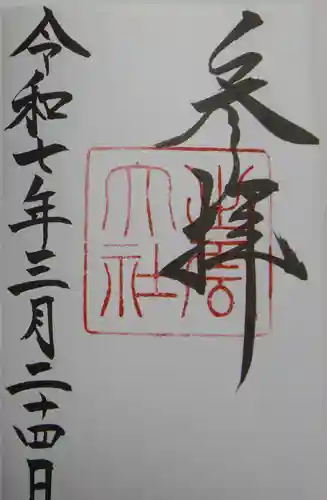 参拝
大社
令和七年三月二十四日